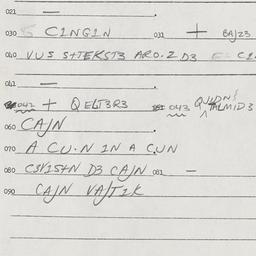 021 —
030 C1NG1N 031 + BAJZ3
040 VUS S+TEKST3 ARO.Z D3 C1.
041 —
042 + QELT3R3 043 QUIDNS PALMID3
060 CAJN
070 A CU.N 1N A CUN
080 C3V1S+N D3 CAJN 081 —
090 CAJN VAJT1K